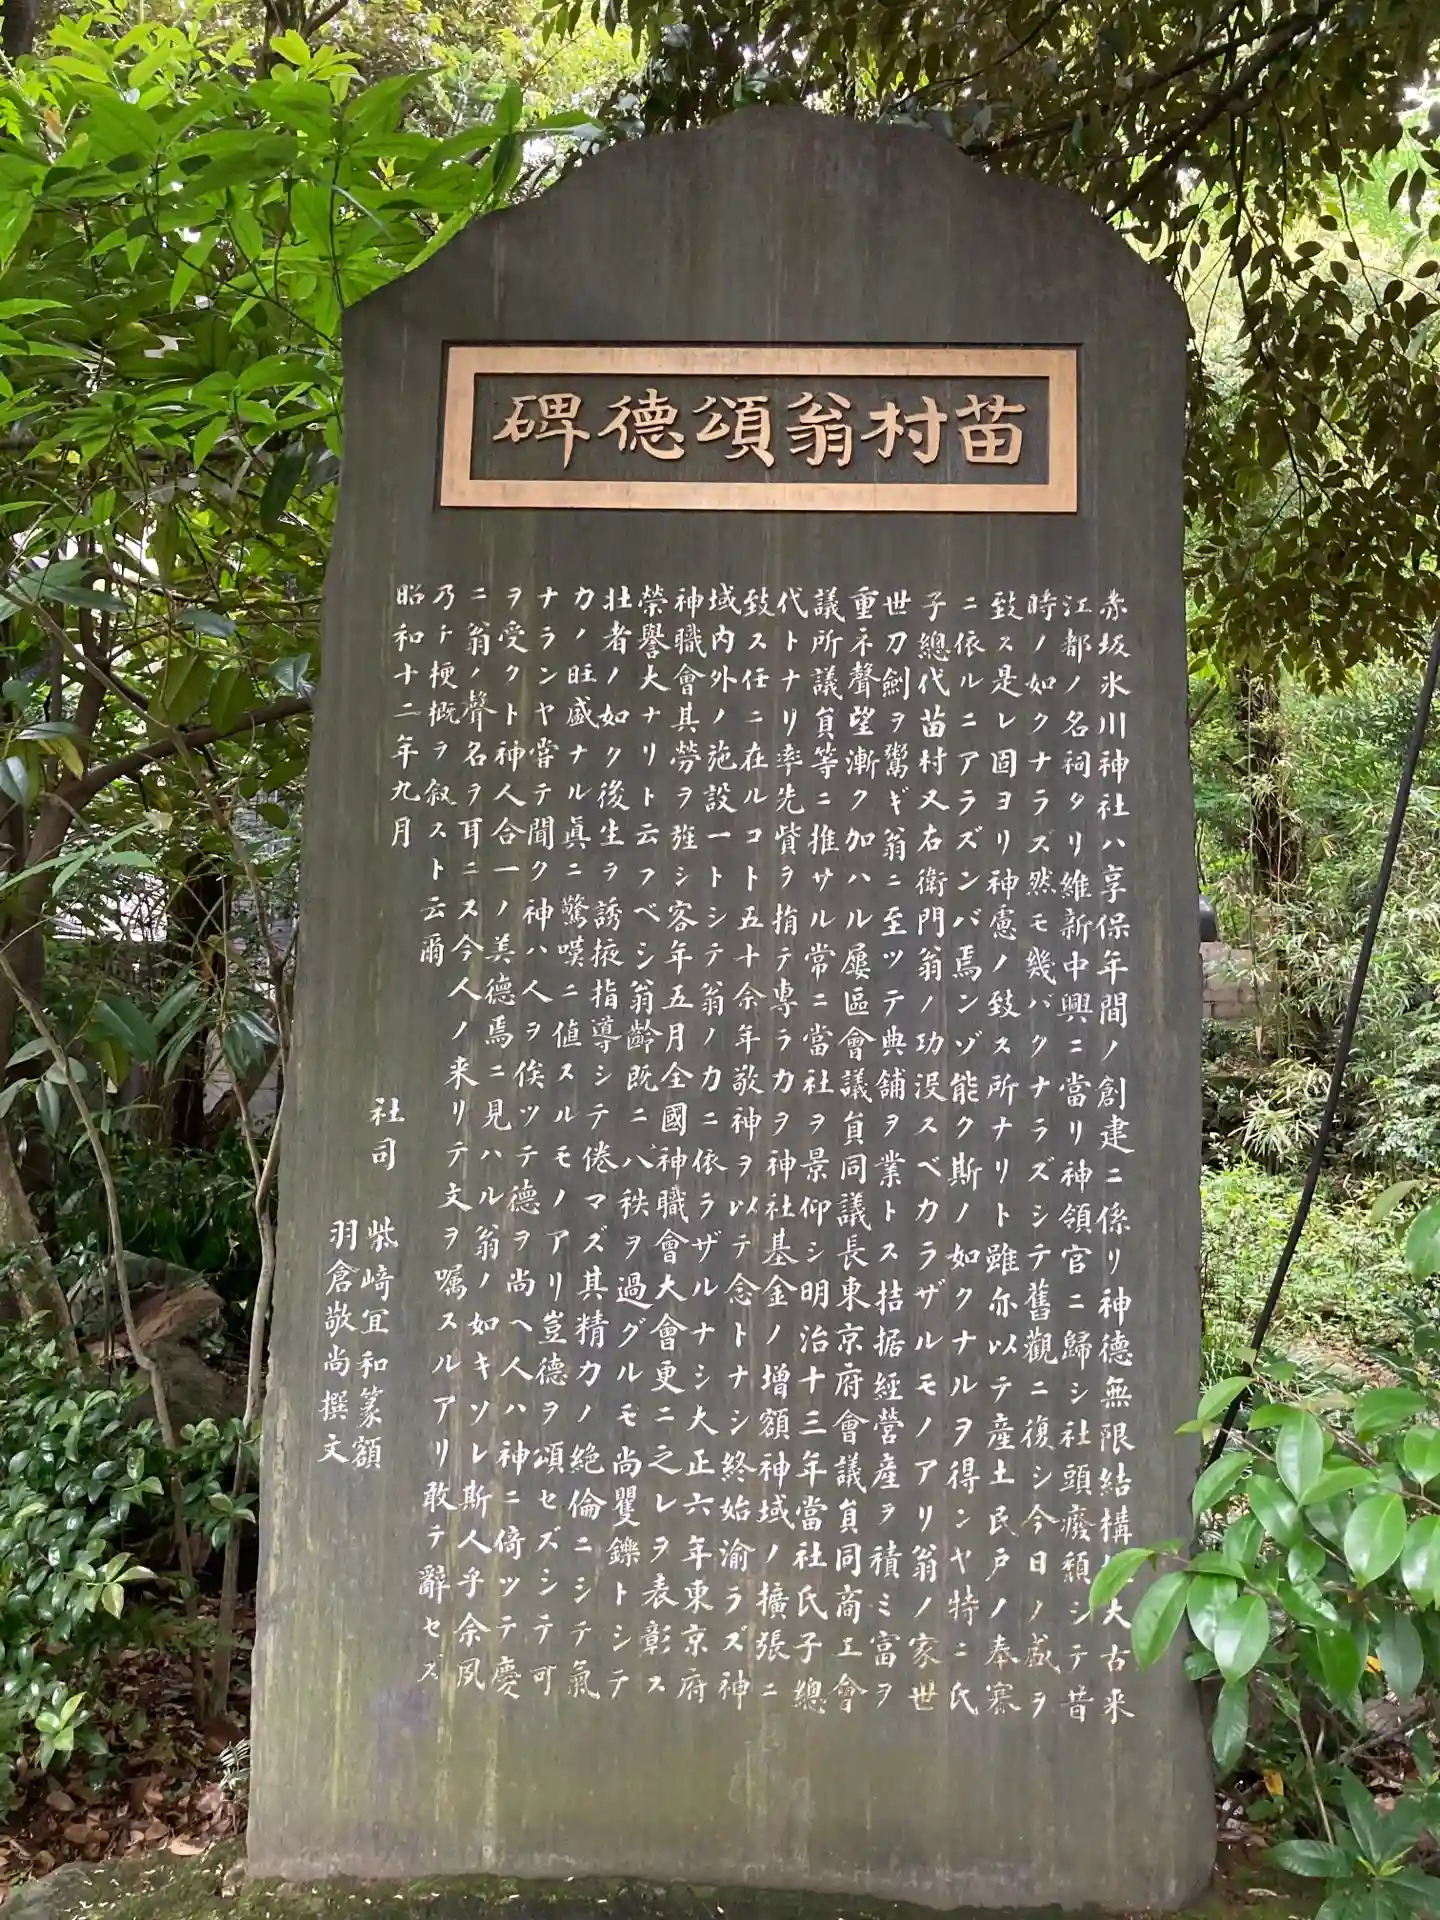 苗村翁頌德碑
赤坂氷川神社ハ享保年間ノ創建ニ係リ神德無限結構大古来
江都ノ名祠タリ維新中興ニ當リ神領官ニ歸シ社頭癈頽シテ昔
時ノ如クナラズ然モ幾バクナラズシテ舊觀ニ復シ今日ノ盛ヲ
致ス是レ固ヨリ神慮ノ致ス所ナリト雖尓以テ産土民戸ノ奉賽
ニ依ルニアラズンバ焉ンゾ能ク斯ノ如クナルヲ得ンヤ特ニ氏
子總代苗村又右衛門翁ノ功没スベカラザルモノアリ翁ノ家世
世刀劍ヲ鬻ギ翁ニ至ツテ典舗ヲ業トス拮据經営産ヲ積ミ富ヲ
重ネ聲望漸ク加ハル屢區會議員同議長東京府會議員同商工會
議所議員等ニ推サル常ニ當社ヲ景仰シ明治十三年當社氏子總
代トナリ率先貲ヲ捐テ専ラカヲ神社基金ノ増額神域ノ擴張ニ
致ス任ニ在ルコト五十余年敬神ヲ以テ念トナシ終始渝ラズ神
域内外ノ施設一トシテ翁ノカニ依ラザルナシ大正六年東京府
神職會其勞ヲ旌シ客年五月全國神職會大會更ニ之レヲ表彰ス
榮譽大ナリト云フベシ翁齢既ニ八秩ヲ過グルモ尚矍鑠トシテ
壮者ノ如ク後生ヲ誘掖指導シテ倦マズ其精力ノ絶倫ニシテ氣
カノ旺盛ナル眞ニ驚嘆ニ値スルモノアリ豈德ヲ頌セズシテ可
ナランヤ嘗テ聞ク神ハ人ヲ俟ツテ德ヲ尚ヘ人ハ神ニ倚ツテ慶
ヲ受クト神人合一ノ美德焉ニ見ハル翁ノ如キソレ斯人乎余夙
ニ翁ノ聲名ヲ耳ニス今人ノ来リテ文ヲ嘱スルアリ敢テ辭セズ
乃チ梗概ヲ叙スト云爾
昭和十二年九月
社司 柴﨑宜和篆額
羽倉敬尚撰文